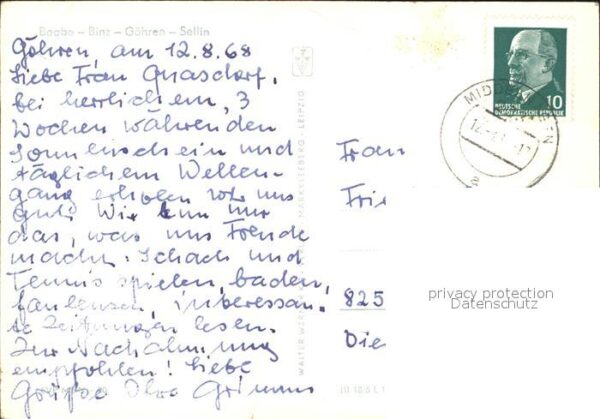 Baabe – Binz – Göhren – Sellin
Göhren, am 12.8.68
Liebe Frau Quasdorf,
bei herrlichem, 3
Wochen währenden
Sonnenschein und
täglichem Wellen-
gang erholen wir uns
gut. Wir tun nur
das, was uns Freude
macht: Schach und
Tennis spielen, baden,
faulenzen, interessan-
te Zeitungen lesen.
Zur Nachahmung
empfohlen! Liebe
Grüße Ihre Grimms
MARKKLEEBERG - LEIPZIG
WALTER
10
DEUTSCHE
DEMOKRATISCHE REPUBLIK
MIDD
EN
Frau
Frie
825
Die
privacy protection
Datenschutz